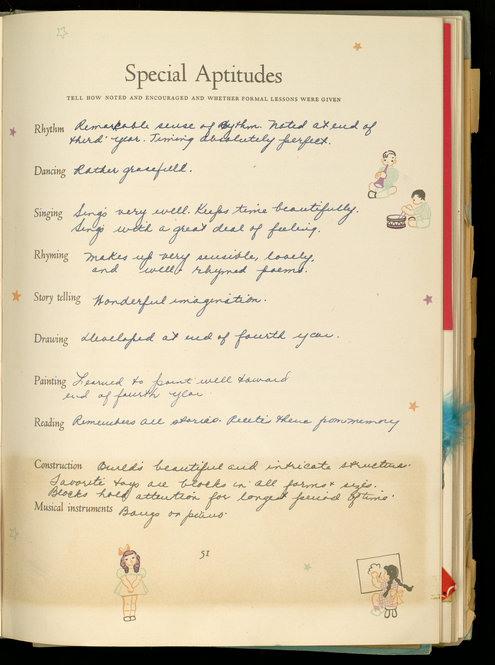 Special Aptitudes
TELL HOW NOTED AND ENCOURAGED AND WHETHER FORMAL LESSONS WERE GIVEN
Rhythm Remarkable sense of Rythm. Noted at end of
third year. Timing absolutely perfect.
Dancing Rather gracefull.
Singing Sings very well. Keeps time beautifully.
Sings with a great deal of feeling.
Rhyming Makes up very sensible, lovely,
and well rhymed poems.
Story telling Wonderful imagination.
Drawing Developed at end of fourth year.
Painting Learned to paint well toward
end of fourth year
Reading Remembers all stories. Recite them from memory
Construction Builds beautiful and intricate structures.
Favorite toys are blocks in all forms + sizes.
Blocks hold attention for longest period of time.
Musical instruments Bangs on piano.
51